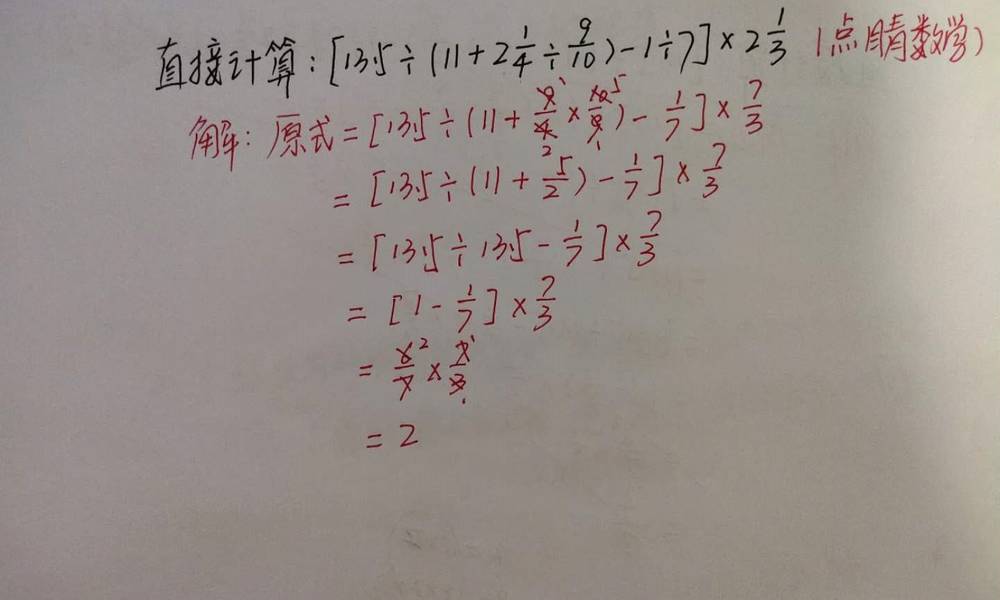 直接计算：[13.5÷(11+2 1/4÷9/10)-1÷7]×2 1/3（点睛数学）
解：原式=[13.5÷(11+9/4×10/9)-1/7]×7/3
=[13.5÷(11+5/2)-1/7]×7/3
=[13.5÷13.5-1/7]×7/3
=[1-1/7]×7/3
=6/7×7/3
=2